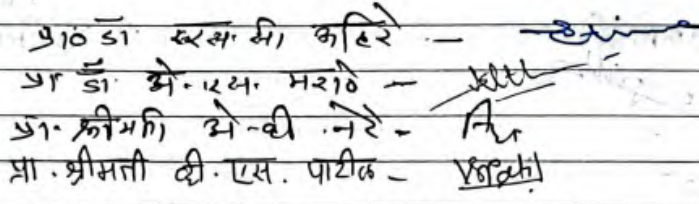 प्रा० डॉ. एस. सी. अहिरे —
प्रा डॉ. ओ. एस. मराठे —
प्रा. श्रीमती ओ-व्ही .नेरे -
प्रा. श्रीमती व्ही. एस. पाटील - VSPatil